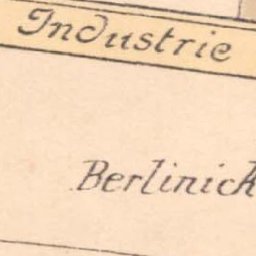 Industrie
Berlinick